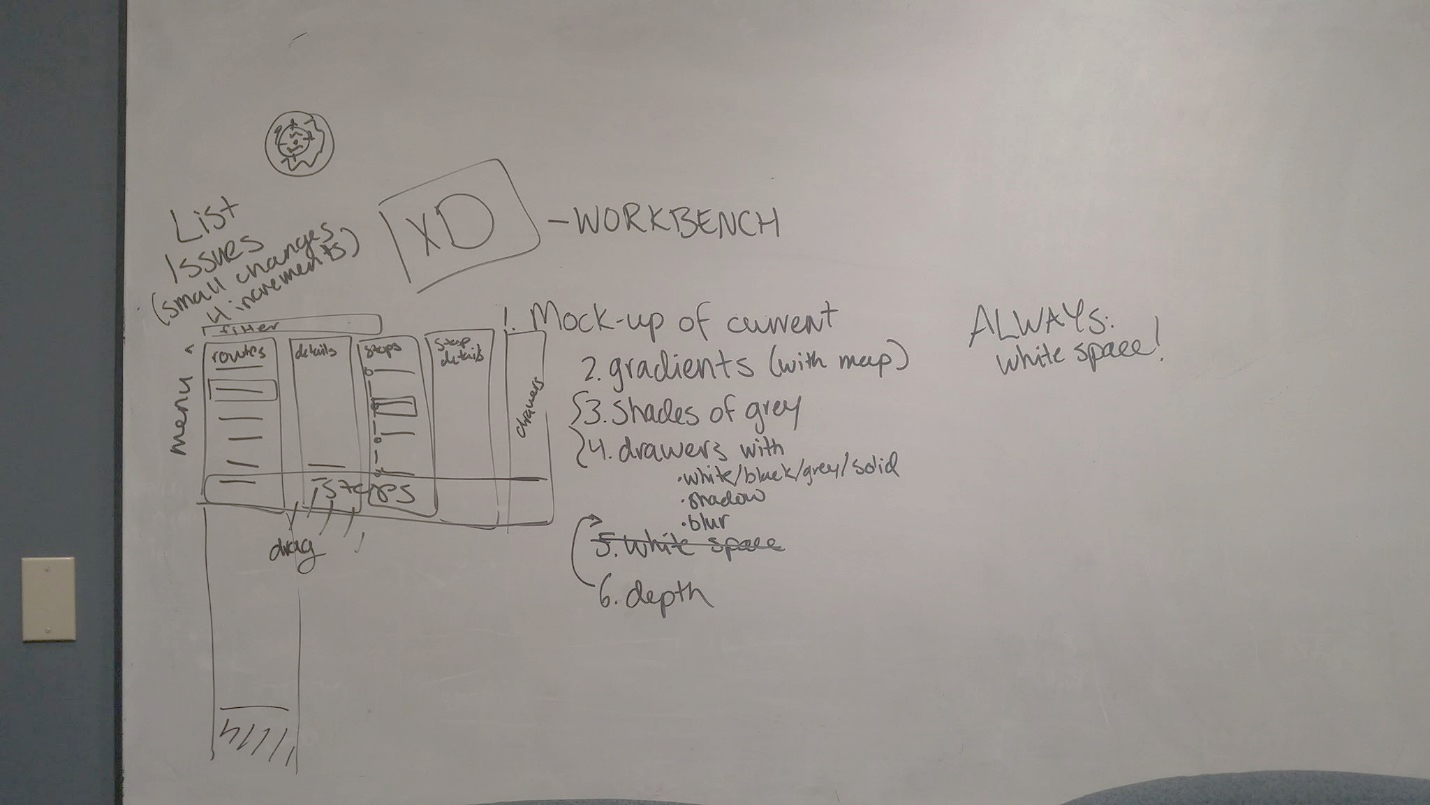 List
Issues
(small changes
4 increments)
XD
- WORKBENCH
filter
menu
routes
details
stops
stop
details
drawers
drag
1. Mock-up of current
2. gradients (with map)
3. Shades of grey
4. drawers with
·white/black/grey/solid
·shadow
·blur
5. white space
6. depth
ALWAYS:
white space!